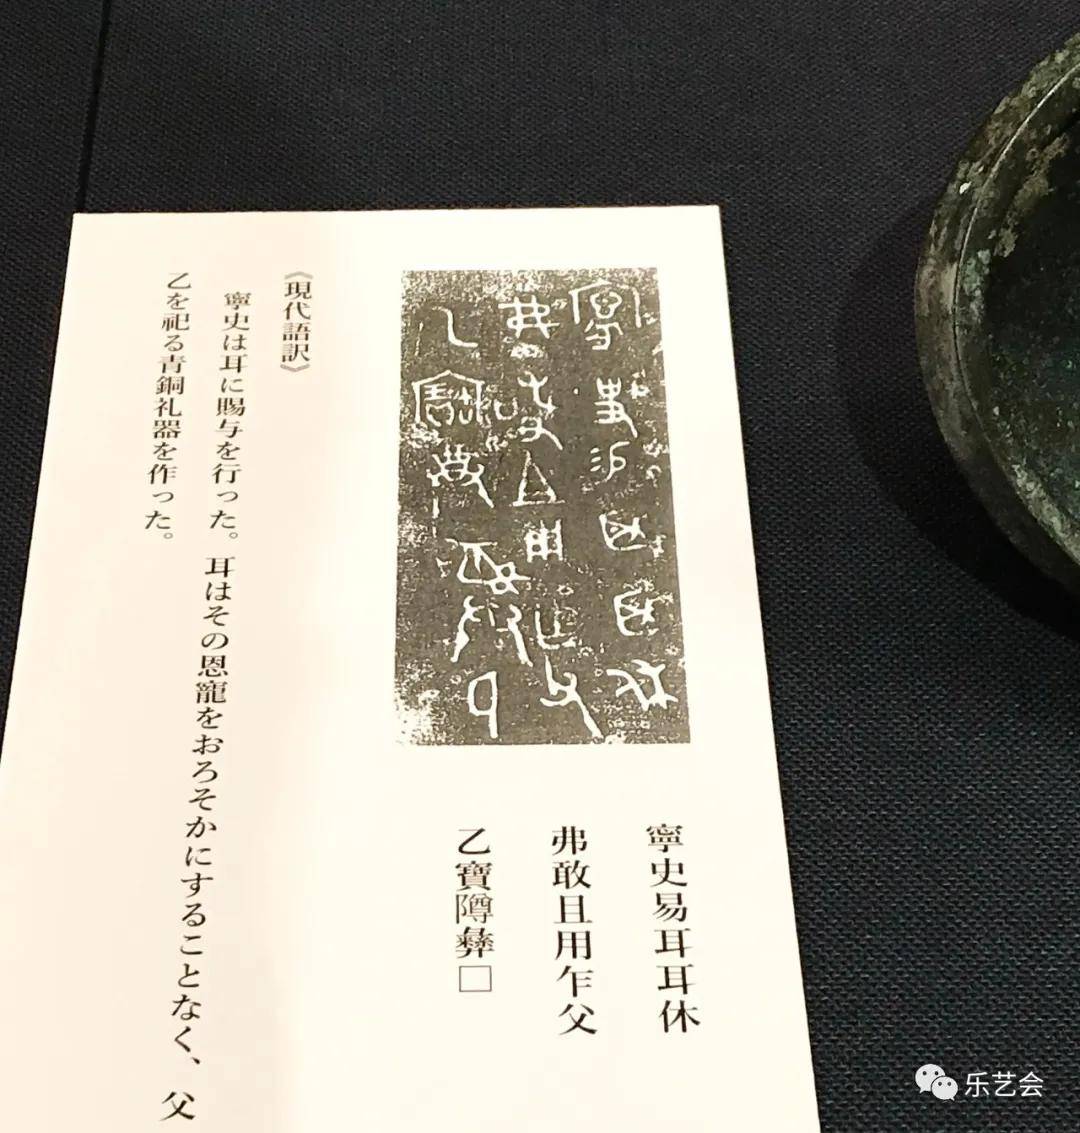 寧史易耳耳休
弗敢且用乍父
乙寶障彝□
《現代語訳》
寧史は耳に賜与を行った。耳はその恩寵をおろそかにすることなく、父
乙を祀る青銅礼器を作った。
乐艺会